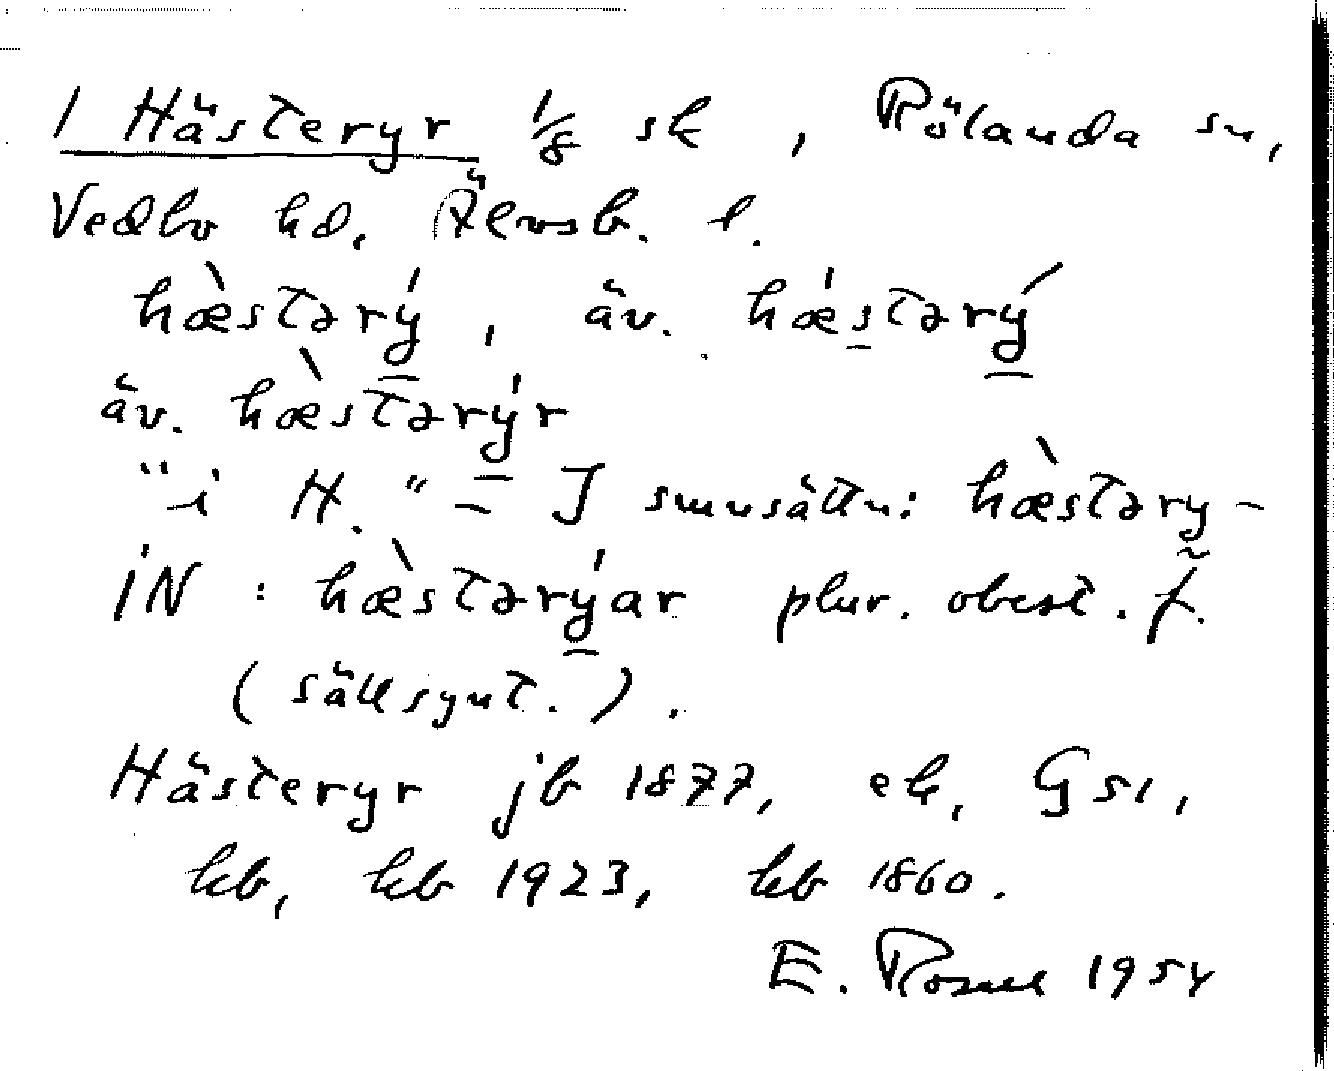 1 Hästeryr 1/8 sk, Rölanda sn,
Vedbo hd, Älvsb. l.
hæ̀stərý̲, äv. hǽs̲tərý̲
äv. hæ̀stərý̲r
"i H." – I smnsättn: hæ̀stəry-
iN : hæ̀stərý̲ar plur. obest. f.
(sällsynt.).
Hästeryr jb 1877, ek, Gs1,
kb, kb 1923, kb 1860.
E. Rosell 1954